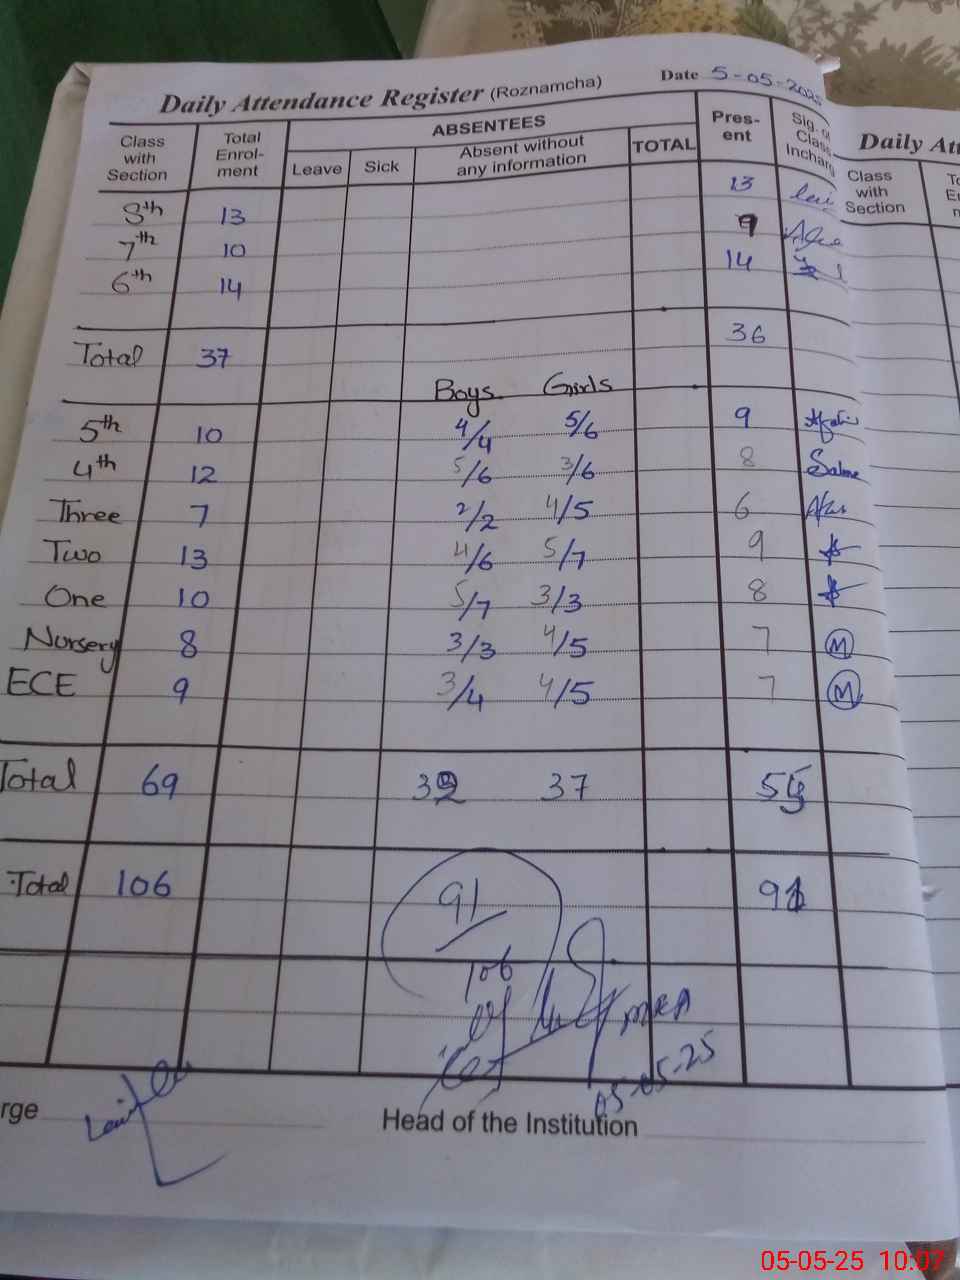 Daily Attendance Register (Roznamcha) Date 5-05-2025
Class with Section Total Enrol-ment ABSENTEES Pres-ent Sig. of Class Incharg
Leave Sick Absent without any information TOTAL
8th 13 13
7th 10 9
6th 14 14
Total 37 36
Boys Girls
5th 10 4/4 5/6 9
4th 12 5/6 3/6 8 Salma
Three 7 2/2 4/5 6
Two 13 4/6 5/7 9
One 10 5/7 3/3 8
Nursery 8 3/3 4/5 7 M
ECE 9 3/4 4/5 7 M
Total 69 32 37 55
Total 106 91
91
106
05-05-25
rge Head of the Institution
Daily Att
Class with Section
05-05-25 10:07